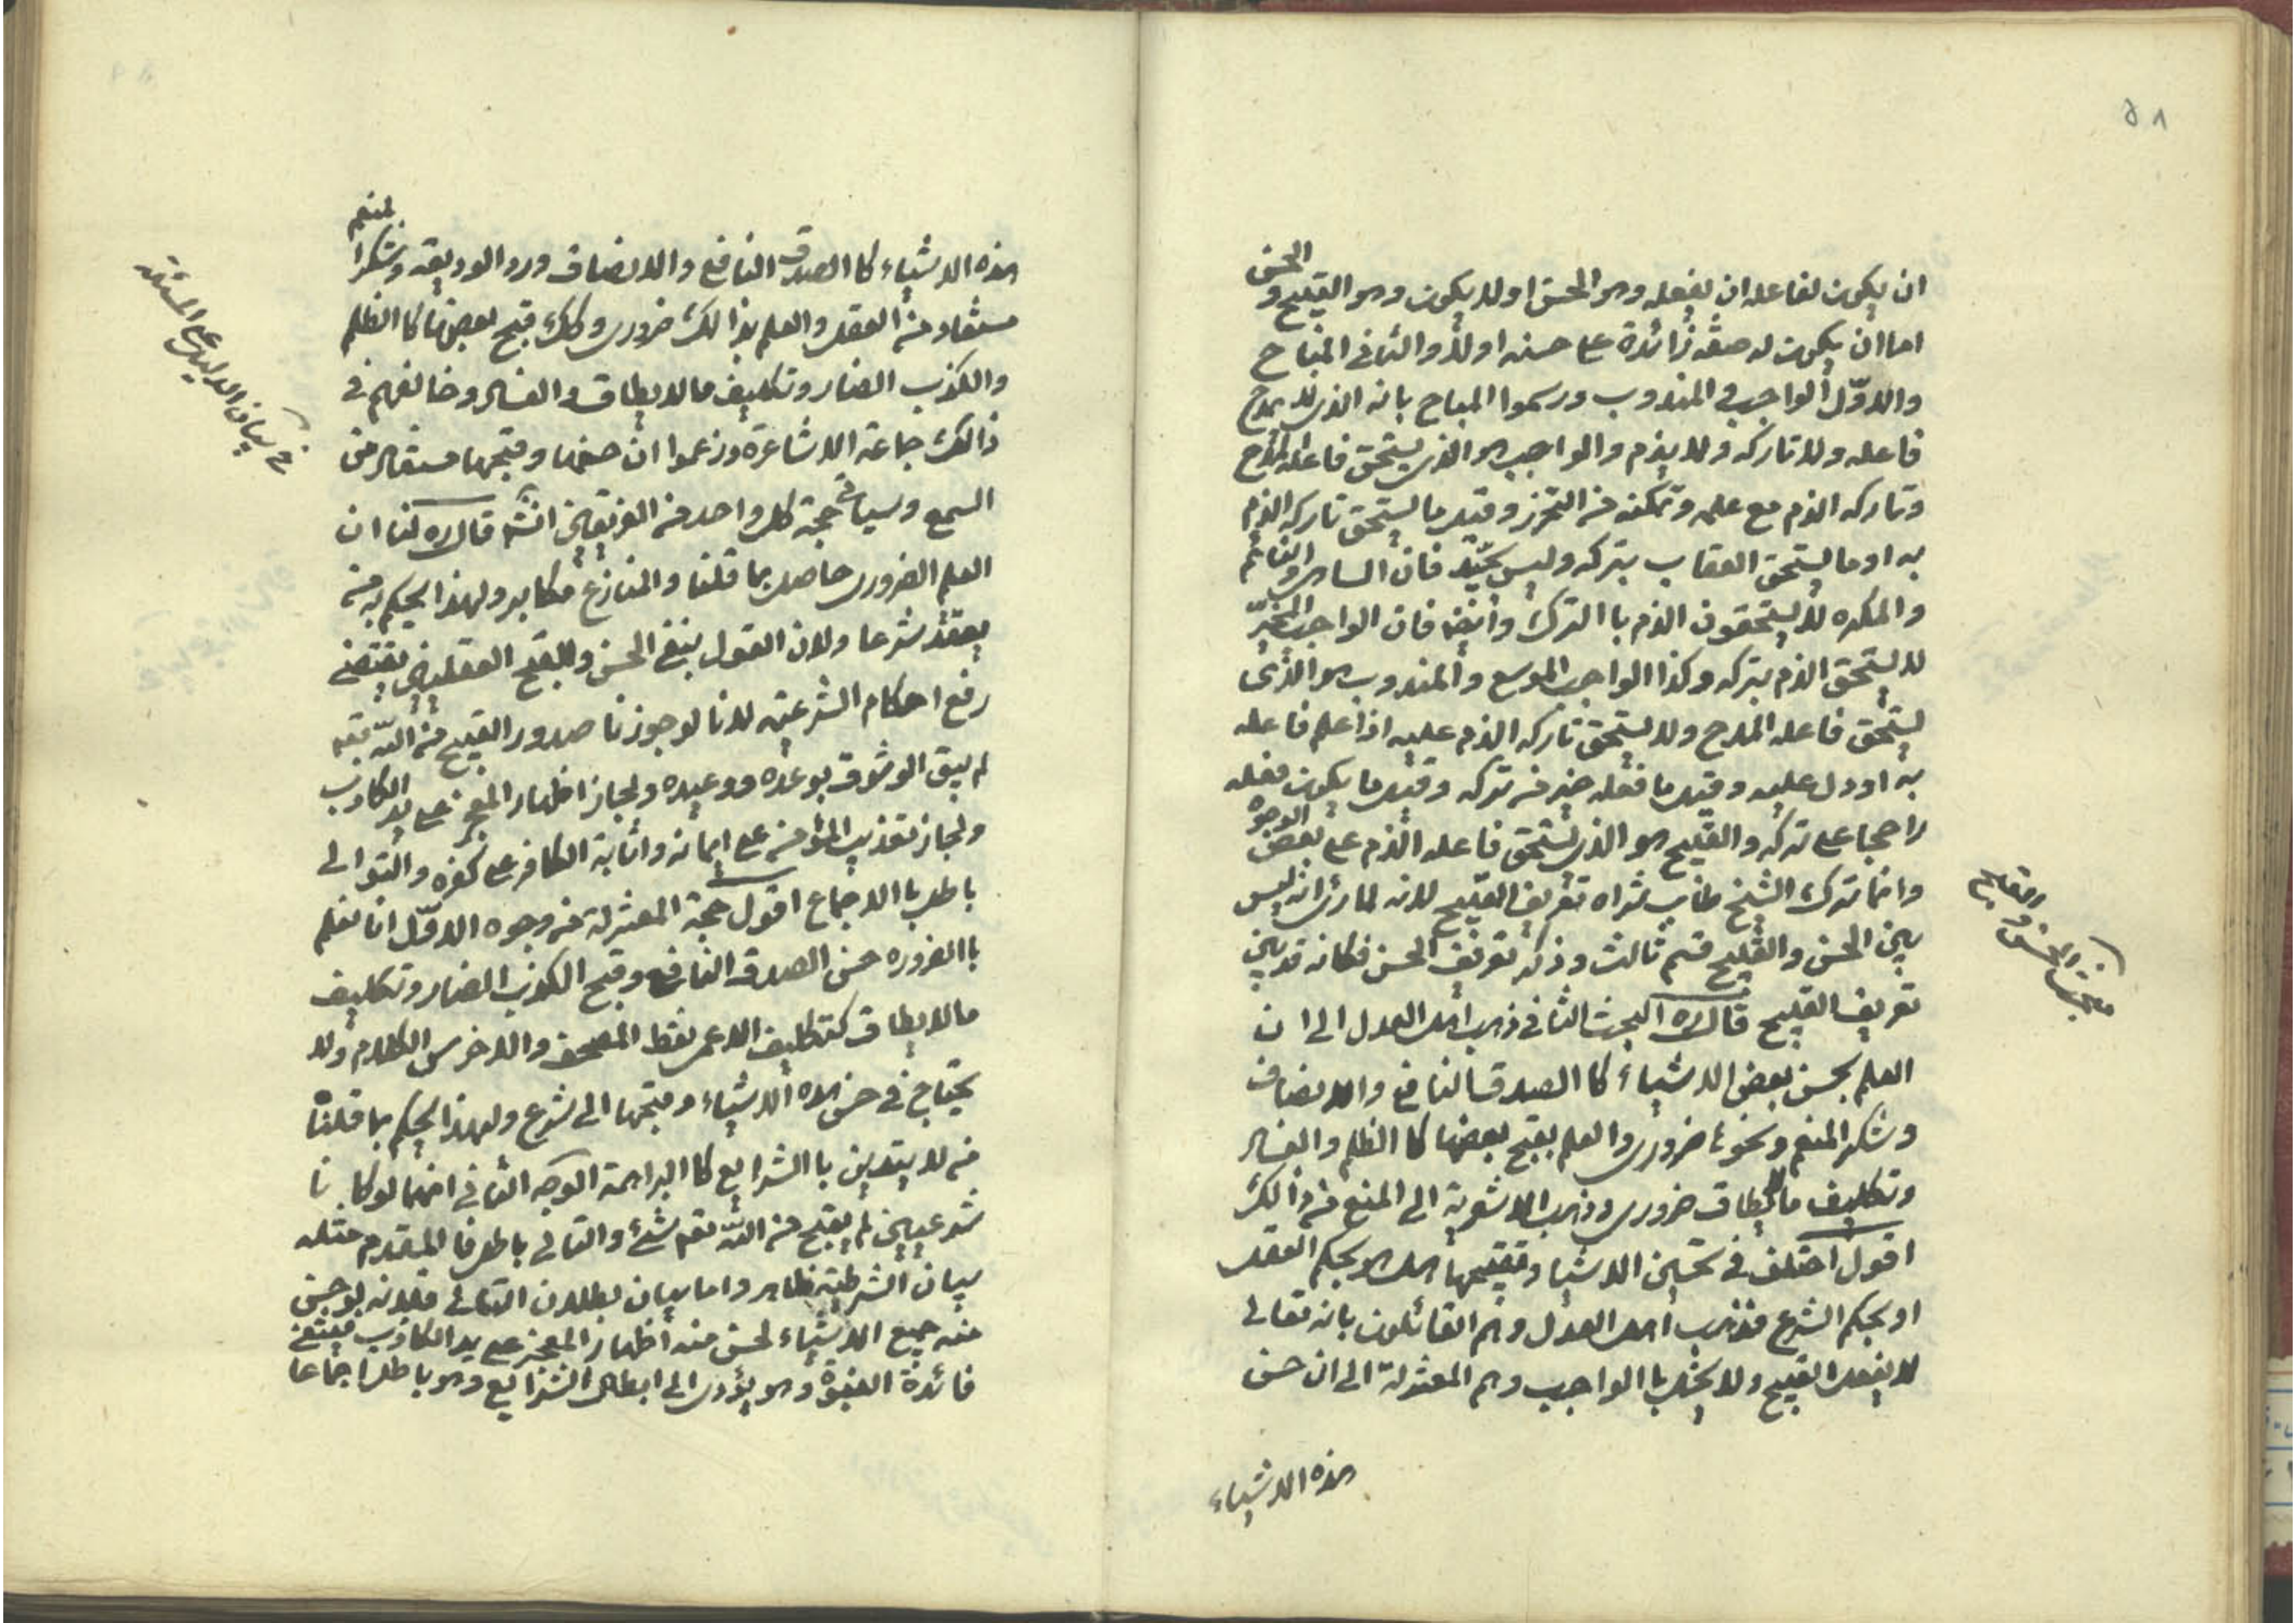 ٥٨
ان يكون لفاعله ان يفعله وهو الحسن او لا يكون وهو القبيح و الحسن
اما ان يكون له صفة زائدة على حسنه اولا والثانى المباح
والاوّل الواجب و المندوب ورسموا المباح بانه الذى لا يمدح
فاعله ولا تاركه ولا يذم والواجب هو الذى يستحق فاعله المدح
وتاركه الذم مع علمه وتمكنه من التحرز وقيل ما يستحق تاركه الذم
به او ما يستحق العقاب بتركه وليس بجيّد فان الساهى والنائم
والمكره لا يستحقون الذم باالترك وايضا فان الواجب المخيّر
لا يستحق الذم بتركه وكذا الواجب الموسع والمندوب هو الذى
يستحق فاعله المدح ولا يستحق تاركه الذم عليه اذا علم فاعله
به اودل عليه وقيل ما فعله خير من تركه وقيل ما يكون فعله
راجحا على تركه والقبيح هو الذى يستحق فاعله الذم على بعض الوجوه
وانما ترك الشيخ طاب ثراه تعريف القبيح لانه لما رئ انه ليس
بين الحسن والقبيح قسم ثالث وذكر تعريف الحسن فكانه قد بين
تعريف القبيح قال ره البحث الثانى ذهب اهل العدل الى ان
العلم بحسن بعض الاشياء كا الصدق النافع والانصاف
وشكر المنعم ونحوها ضرورى والعلم بقبح بعضها كا الظلم والفساد
وتكليف مالايطاق ضرورى وذهب الاشعرية الى المنع من ذالك
اقول اختلف فى تحسين الاشيا وتقبيحها هل هو بحكم العقل
او بحكم الشرع فذهب اهل العدل وهم القائلون بانه تعالى
لا يفعل القبيح ولا يخل باالواجب وهم المعتزلة الى ان حسن
هذه الاشياء
مبحث الحسن و القبح
هذه الاشياء كا الصدق النافع والانصاف ورد الوديعة وشكر المنعم
مستفاد من العقل والعلم بذالك ضرورى وكذلك قبح بعضها كا الظلم
والكذب الضار وتكليف مالايطاق والفساد وخالفهم فى
ذالك جماعة الاشاعرة وزعموا ان حسنها وقبحها مستفاد من
السمع وسياتى حجة كل واحد من الفريقين انشه قال ره لنا ان
العلم الضرورى حاصل بما قلنا والمنازع مكابر ولهذا يحكم به من
يعتقد شرعا ولان القول بنفى الحسن والقبح العقليين يقتضى
رفع احكام الشرعية لانا لو جوزنا صدور القبيح من اللّه تعم
لم يبق الوثوق بوعده ووعيده ولجاز اظهار المعجز على يد الكاذب
ولجاز تعذيب المؤمن على ايمانه واثابة الكافر على كفره والتوالى
باطل باالاجماع اقول حجة المعتزلة من وجوه الاوّل انا نعلم
باالضروره حسن الصدق النافع وقبح الكذب الضار وتكليف
مالايطاق كتكليف الاعمى نقط المصحف والاخرس الكلام ولا
يحتاج فى حسن هذه الاشياء وقبحها الى شرع ولهذا يحكم بما قلناه
من لا يتدين باالشرايع كا البراهمة الوجه الثانى انهما لو كانا
شرعيين لم يقبح من اللّه تعم شئ والتالى باطل فالمقدم مثله
بيان الشرطية ظاهر واما بيان بطلان التالى فلانه لو حسن
منه جميع الاشياء لحسن منه اظهار المعجز على يد الكاذب فينتفى
فائدة النبوة وهو يؤدى الى ابطال الشرايع وهو باطل اجماعا
فى بيان الدليل على المسئلة